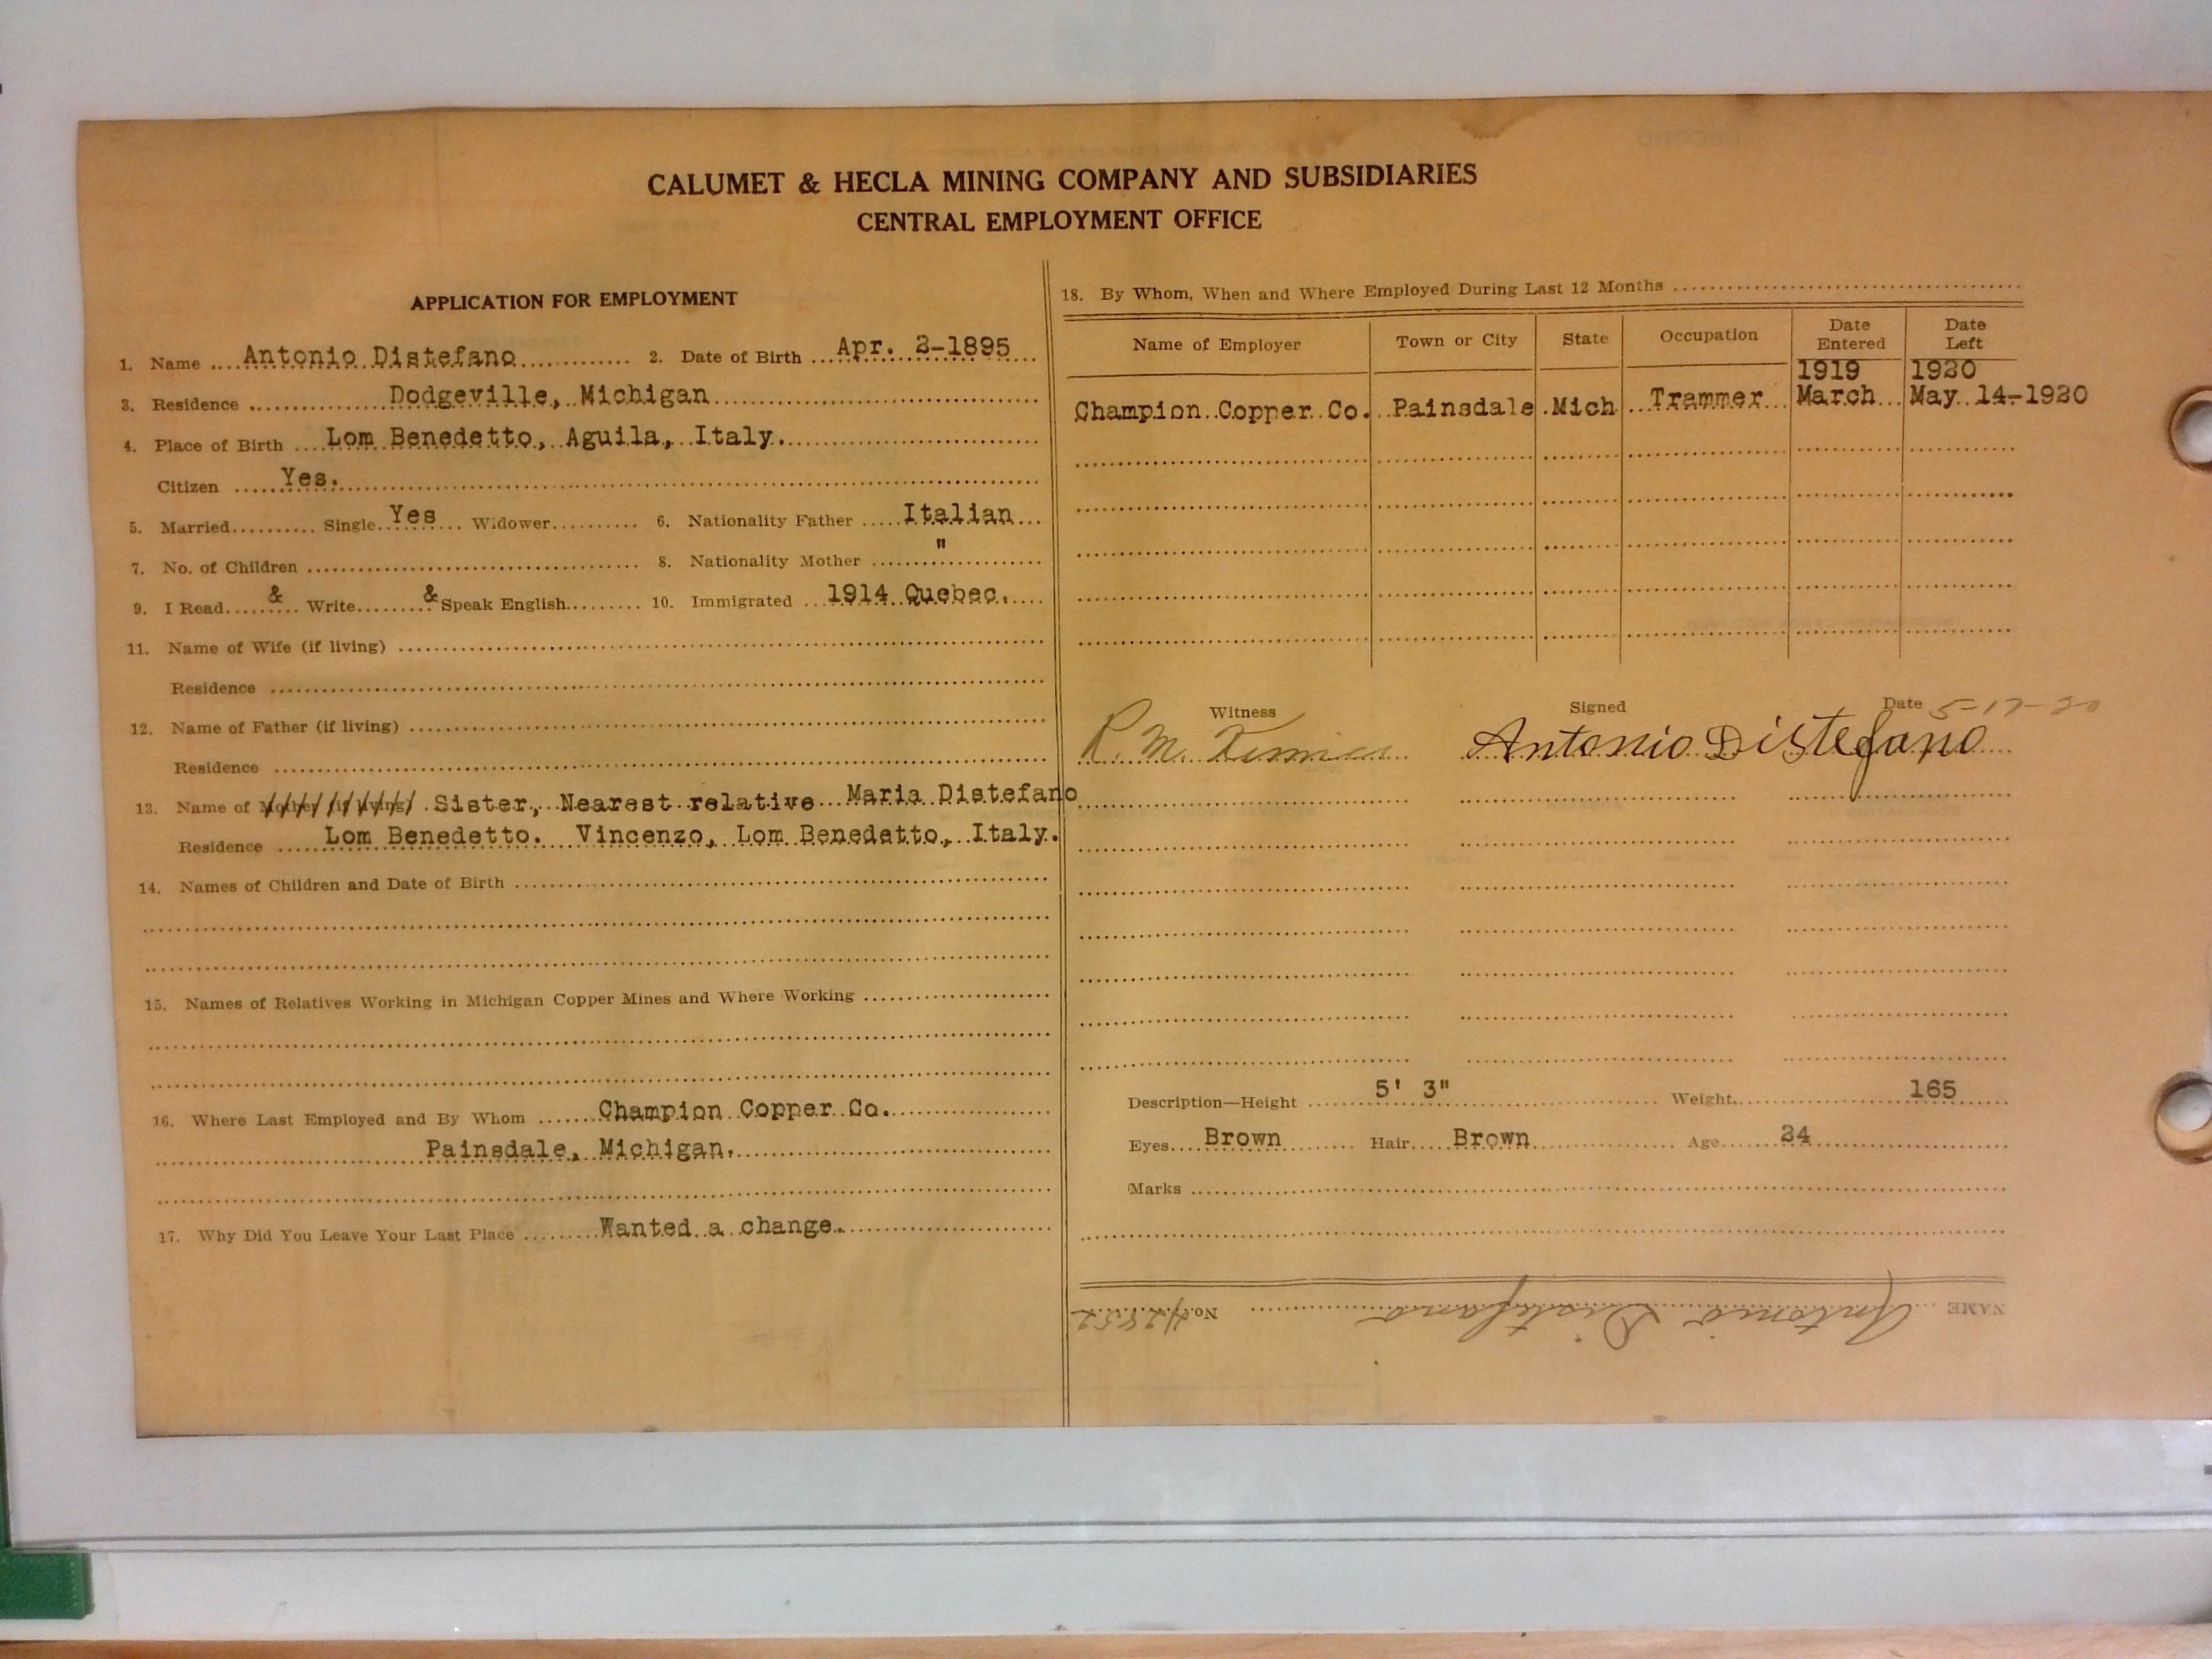 CALUMET & HECLA MINING COMPANY AND SUBSIDIARIES
CENTRAL EMPLOYMENT OFFICE
APPLICATION FOR EMPLOYMENT
1. Name Antonio Distefano 2. Date of Birth Apr. 2-1895
3. Residence Dodgeville, Michigan
4. Place of Birth Lom Benedetto, Aguila, Italy.
Citizen Yes.
5. Married Single Yes Widower 6. Nationality Father Italian
7. No. of Children 8. Nationality Mother "
9. I Read & Write & Speak English 10. Immigrated 1914 Quebec.
11. Name of Wife (if living)
Residence
12. Name of Father (if living)
Residence
13. Name of Mother (if living) Sister, Nearest relative Maria Distefano
Residence Lom Benedetto. Vincenzo, Lom Benedetto, Italy.
14. Names of Children and Date of Birth
15. Names of Relatives Working in Michigan Copper Mines and Where Working
16. Where Last Employed and By Whom Champion Copper Co.
Painsdale, Michigan.
17. Why Did You Leave Your Last Place Wanted a change.
18. By Whom, When and Where Employed During Last 12 Months
Name of Employer Town or City State Occupation Date Entered Date Left
1919 1920
Champion Copper Co. Painsdale Mich Trammer March May 14-1920
Witness Signed Date 5-17-20
R. M. Antonio Distefano
Description—Height 5' 3" Weight 165
Eyes Brown Hair Brown Age 24
Marks
NAME Antonio Distefano No.